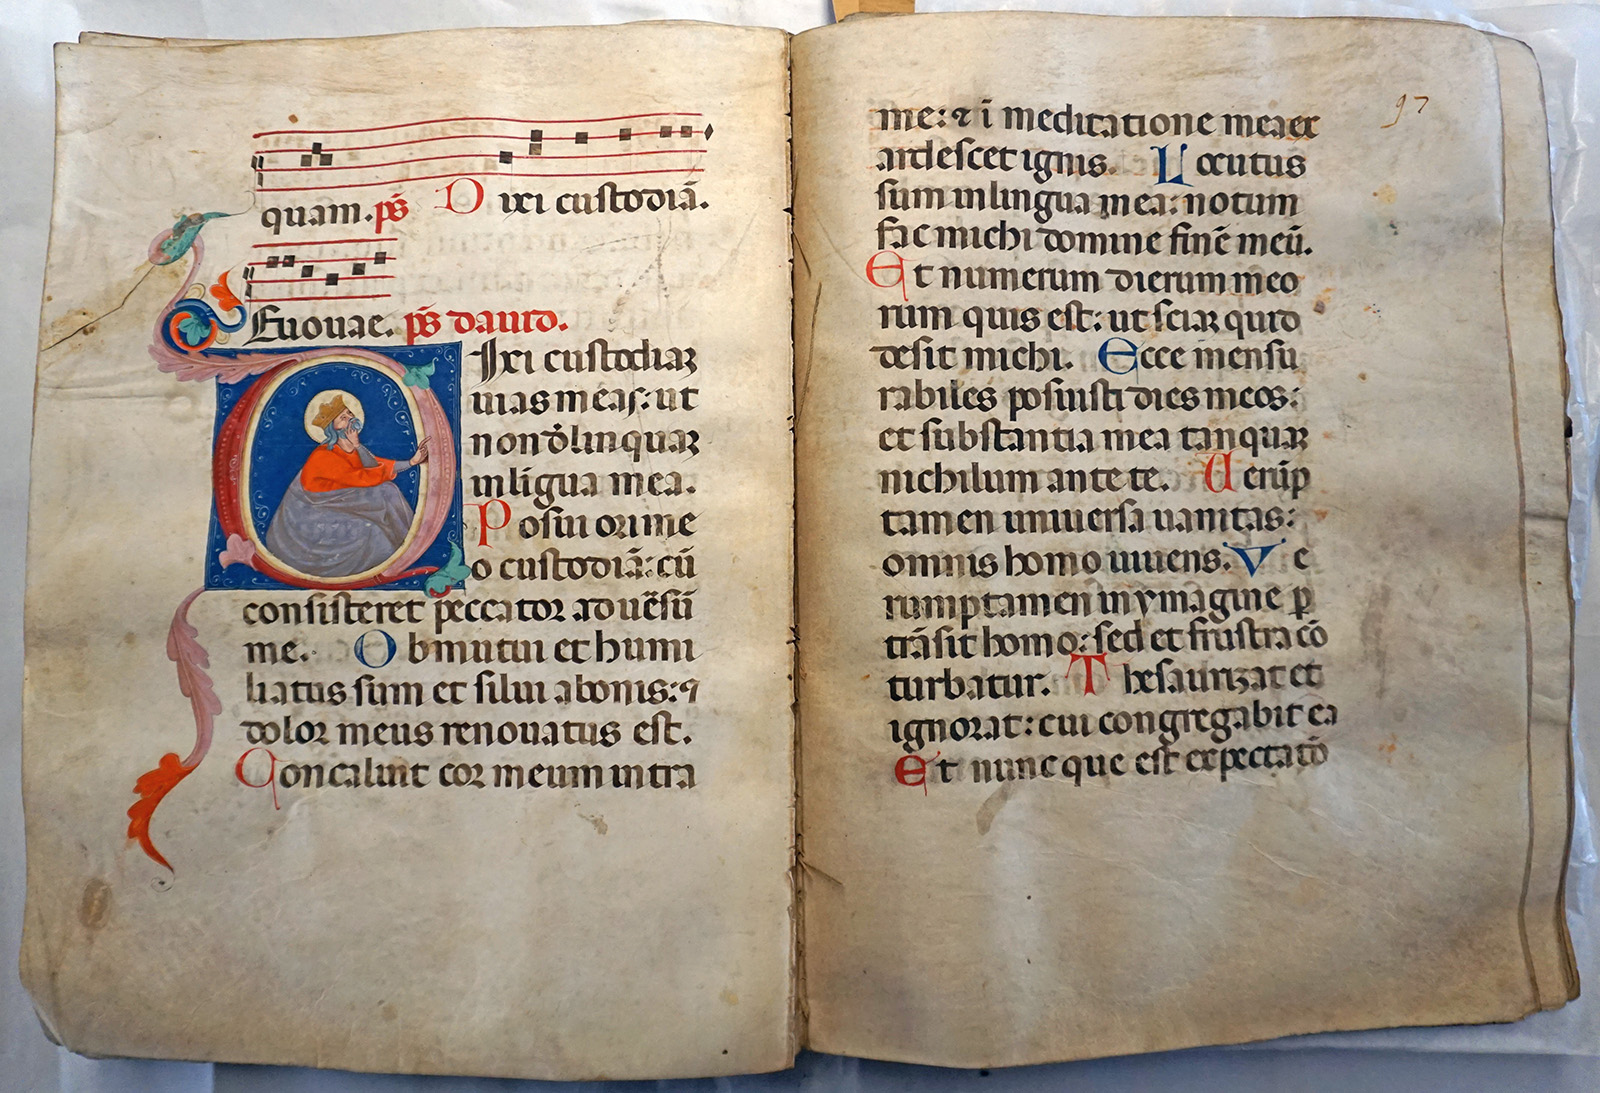 quam. ps̄ Dixi custodiā.
Euouae. ps̄ dauid.
Dixi custodiaꝫ
uias meas: ut
non dēlinquaꝫ
in līgua mea.
Posui ori me
o custodiā: cū
consisteret peccator aduēsū
me. Obmutui et humi
liatus sum et silui abonis: ⁊
dolor meus renouatus est.
Concaluit cor meum intra
97
me: ⁊ ī meditatione mea ex
ardescet ignis. Locutus
sum in lingua mea: notum
fac michi domine finē meū.
Et numerum dierum meo
rum quis est: ut sciaꝫ quid
desit michi. Ecce mensu
rabiles posuisti dies meos:
et substantia mea tanquaꝫ
nichilum ante te. Uerūp
tamen uniuersa uanitas:
omnis homo uiuens. Ve
rumptamen in ymagine ꝑ
trāsit homo: sed et frustra cō
turbatur. Thesaurizat et
ignorat: cui congregabit ea
Et nunc que est expectatō